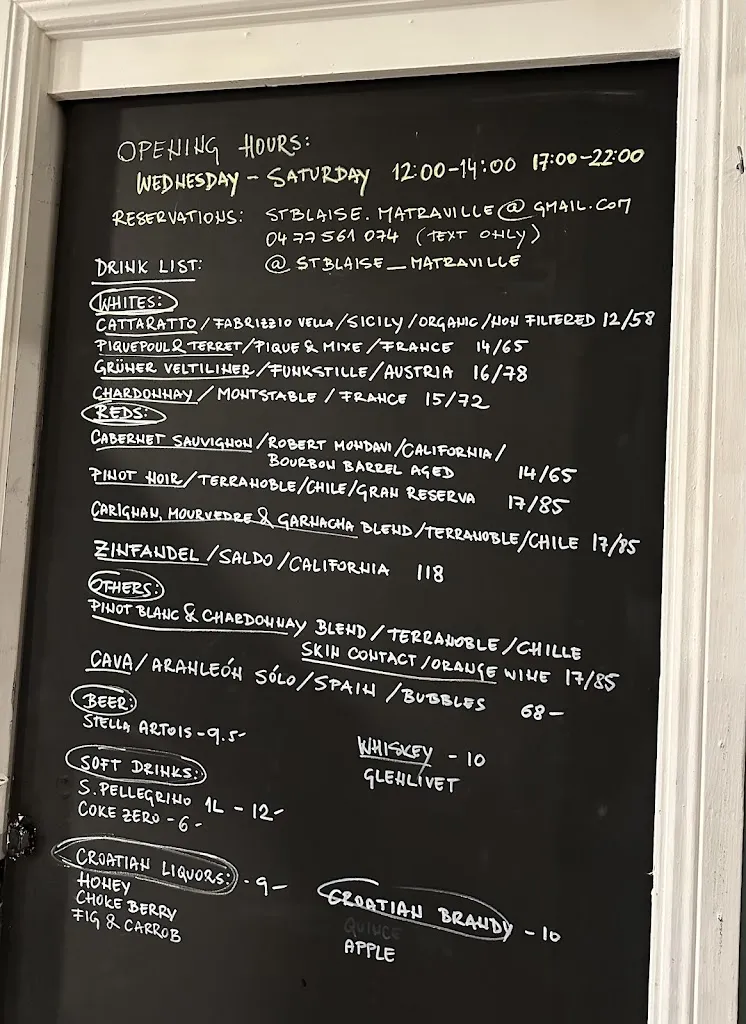 OPENING HOURS:
WEDNESDAY - SATURDAY 12:00-14:00 17:00-22:00
RESERVATIONS: STBLAISE.MATRAVILLE@GMAIL.COM
0477561074 (TEXT ONLY)
@STBLAISE_MATRAVILLE
DRINK LIST:
WHITES:
CATTARATTO/FABRIZZIO VELLA/SICILY/ORGANIC/NON FILTERED 12/58
PIQUEPOUL & TERRET/PIQUE & MIXE/FRANCE 14/65
GRÜNER VELTILINER/FUNKSTILLE/AUSTRIA 16/78
CHARDONNAY/MONTSTABLE/FRANCE 15/72
REDS:
CABERNET SAUVIGNON/ROBERT MONDAVI/CALIFORNIA/
BOURBON BARREL AGED 14/65
PINOT NOIR/TERRANOBLE/CHILE/GRAN RESERVA 17/85
CARIGNAN, MOURVEDRE & GARNACHA BLEND/TERRANOBLE/CHILE 17/85
ZINFANDEL/SALDO/CALIFORNIA 118
OTHERS:
PINOT BLANC & CHARDONNAY BLEND/TERRANOBLE/CHILLE
SKIN CONTACT/ORANGE WINE 17/85
CAVA/ARANLEÓN SÓLO/SPAIN/BUBBLES 68-
BEER:
STELLA ARTOIS-9.5-
WHISKEY - 10
GLENLIVET
SOFT DRINKS:
S.PELLEGRINO 1L - 12-
COKE ZERO - 6-
CROATIAN LIQUORS: - 9-
HONEY
CHOKE BERRY
FIG & CARROB
CROATIAN BRANDY - 10
QUINCE
APPLE